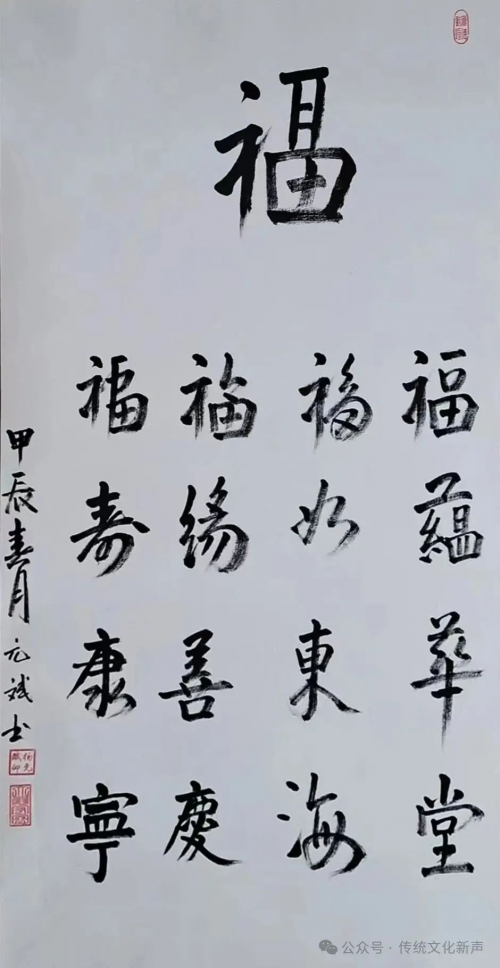 福
福蘊華堂
福如東海
福緣善慶
福寿康寧
甲辰春月 元斌书
公众号·传统文化新声